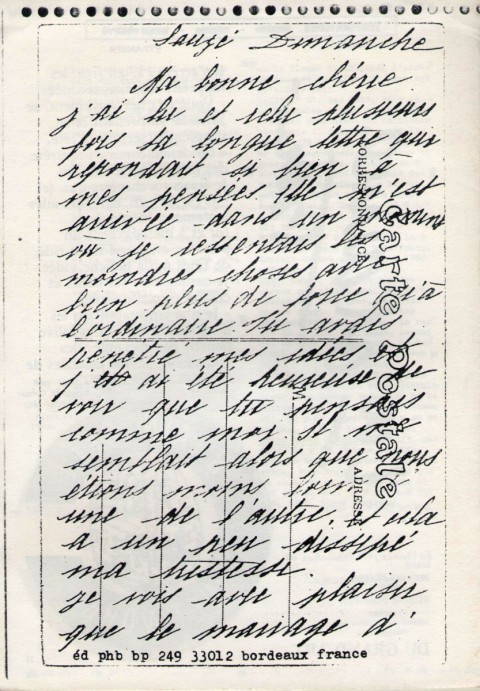 Sauzé Dimanche
Ma bonne chérie
j'ai lu et relu plusieurs
fois ta longue lettre qui
repondait si bien à
mes pensées Elle m'est
arrivée dans un moment
où je ressentais les
moindres choses avec
bien plus de force qu'à
l'ordinaire. Tu avais
pénétré mes idées et
j'ai été heureuse de
voir que tu pensais
comme moi. Il me
semblait alors que nous
étions moins loin
une de l'autre, et cela
a un peu dissipé
ma tristesse.
Je vois avec plaisir
que le mariage d'
CORRESPONDANCE
Carte Postale
M
ADRESSE
éd phb bp 249 33012 bordeaux france